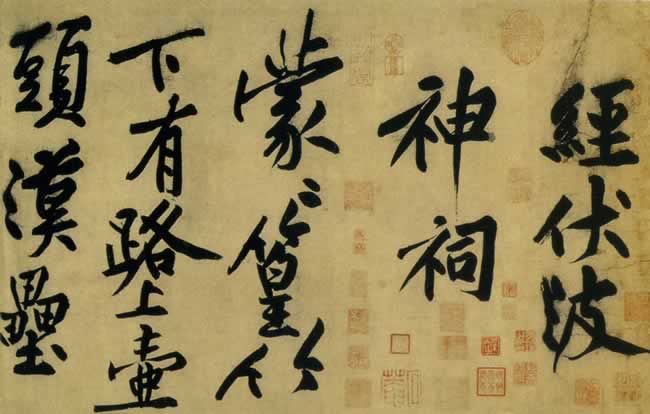 經伏波
神祠
蒙〻篁竹
下有路上壺
頭漢壘